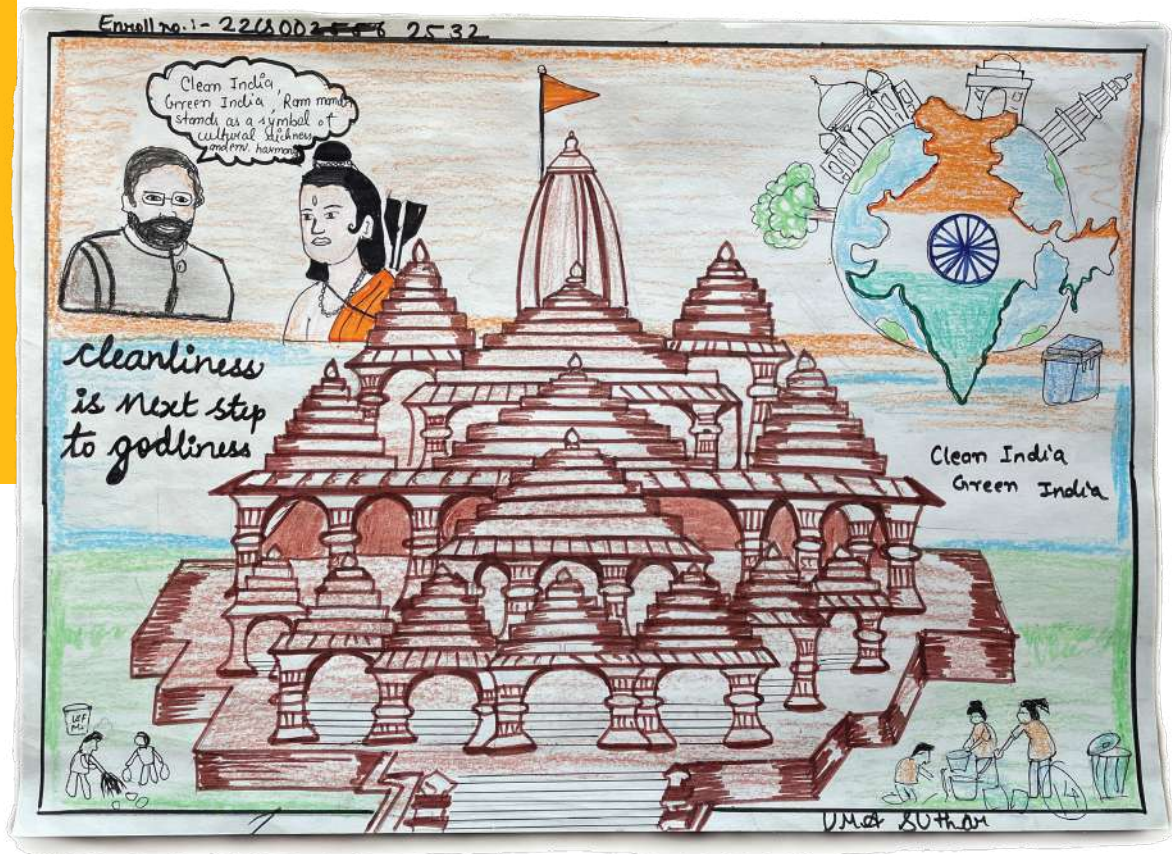 Enroll no.:- 22CS002 2532
Clean India,
Green India, Ram mandir
stands as a symbol of
cultural richness
and env. harmony
cleanliness
is next step
to godliness
Clean India
Green India
USE
Me
Suthar